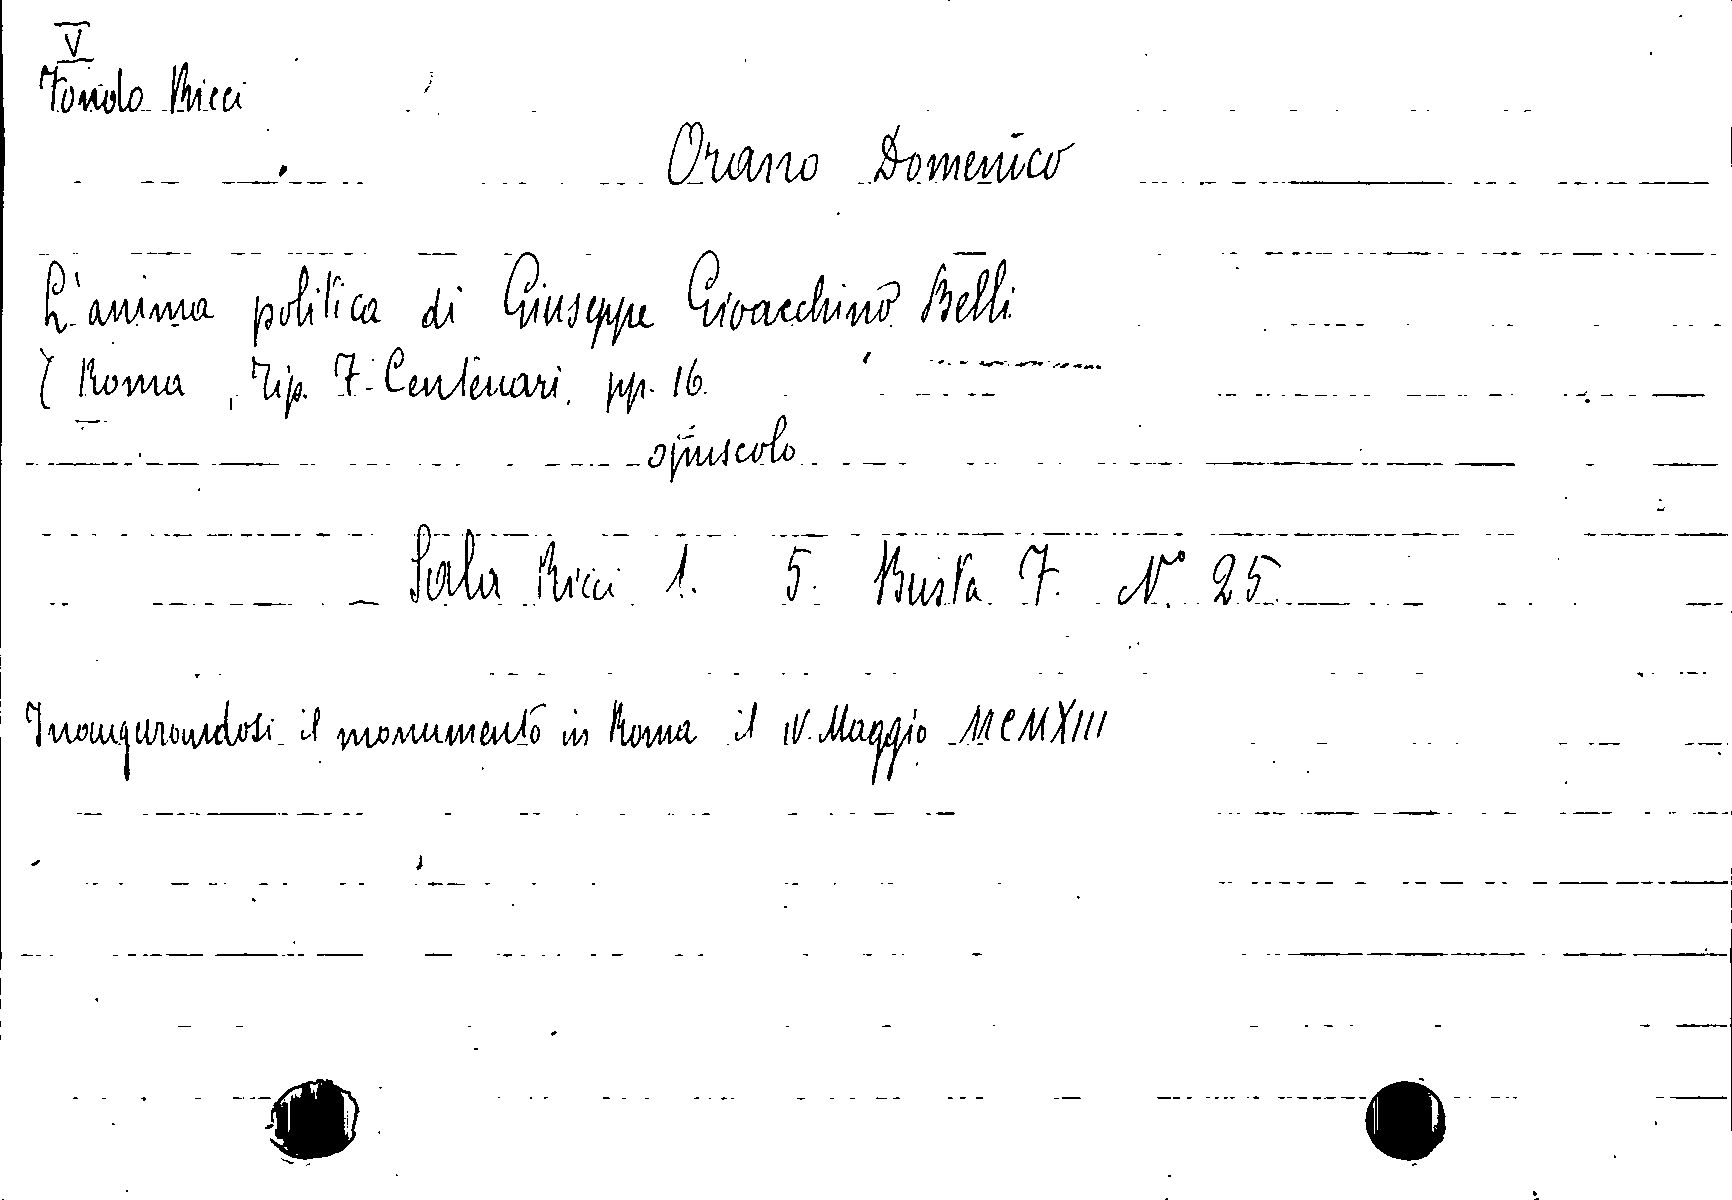 V
Fondo Ricci
Orano Domenico
L'anima politica di Giuseppe Gioacchino Belli
( Roma, Tip. F. Centenari, pp. 16.
opuscolo
Sala Ricci 1. 5. Busta 7. N° 25
Inaugurandosi il monumento in Roma il IV Maggio MCMXIII